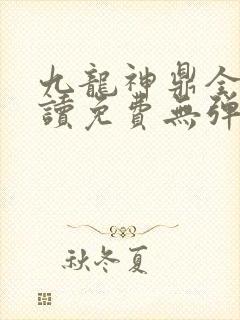 九龍神鼎全
讀免費無彈
秋冬夏